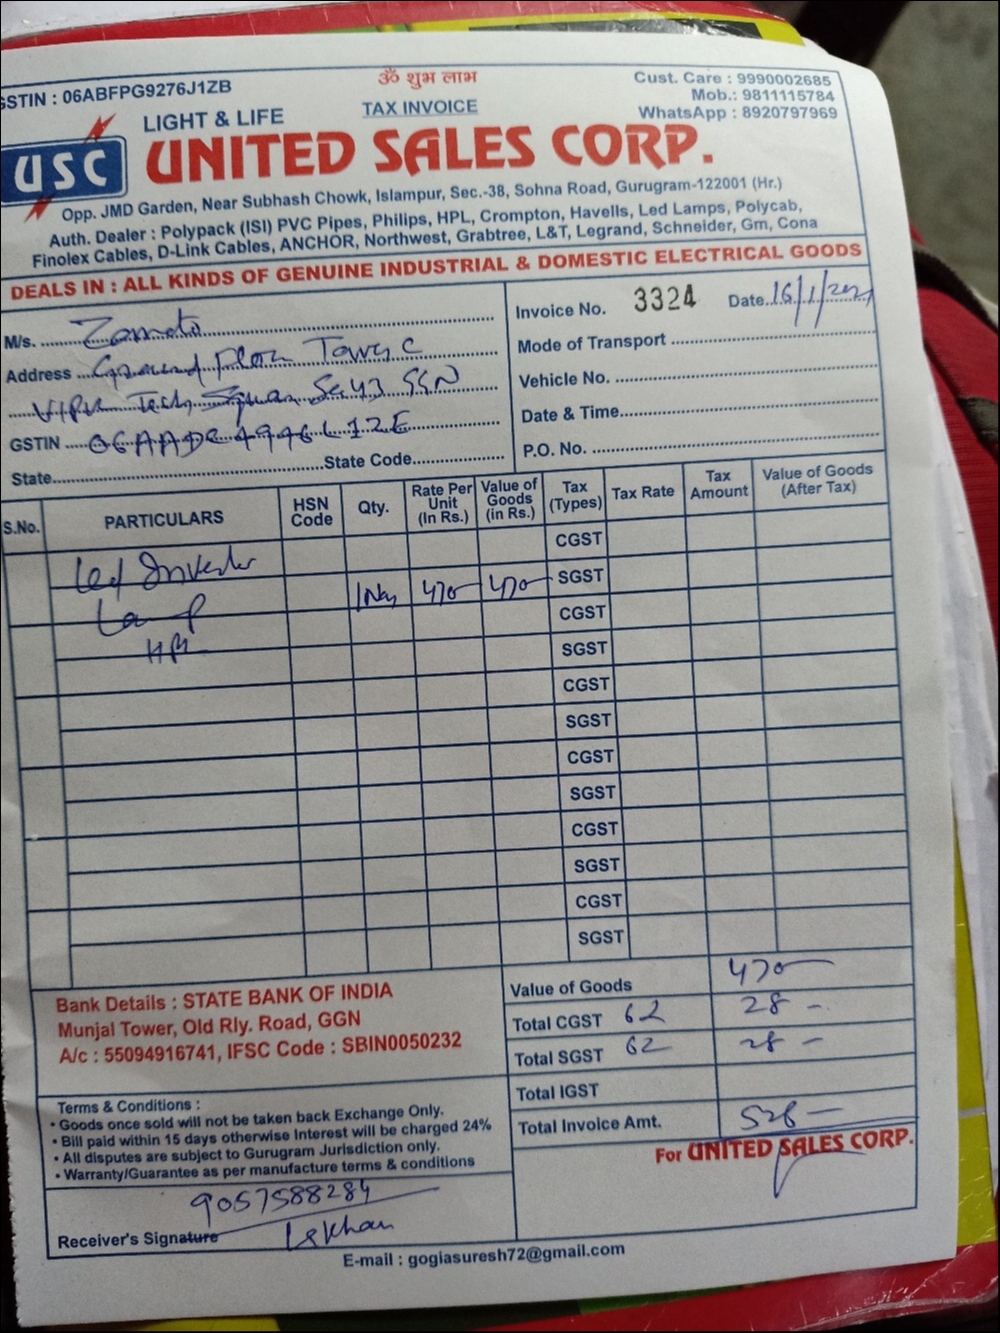 GSTIN : 06ABFPG9276J1ZB
ॐ शुभ लाभ
TAX INVOICE
Cust. Care : 9990002685
Mob.: 9811115784
WhatsApp : 8920797969
LIGHT & LIFE
USC
UNITED SALES CORP.
Opp. JMD Garden, Near Subhash Chowk, Islampur, Sec.-38, Sohna Road, Gurugram-122001 (Hr.)
Auth. Dealer : Polypack (ISI) PVC Pipes, Philips, HPL, Crompton, Havells, Led Lamps, Polycab,
Finolex Cables, D-Link Cables, ANCHOR, Northwest, Grabtree, L&T, Legrand, Schneider, Gm, Cona
DEALS IN : ALL KINDS OF GENUINE INDUSTRIAL & DOMESTIC ELECTRICAL GOODS
M/s. Zomato
Address Ground Floor Tower C
Tech Square Sec 43 GGN
GSTIN 06AADC4946L1ZE
State. State Code.
Invoice No. 3324 Date. 16/1/2021
Mode of Transport
Vehicle No.
Date & Time.
P.O. No.
S.No. PARTICULARS HSN Code Qty. Rate Per Unit (In Rs.) Value of Goods (in Rs.) Tax (Types) Tax Rate Tax Amount Value of Goods (After Tax)
CGST
Led Inverter SGST
Lamp 1 No 470 470 CGST
SGST
CGST
SGST
CGST
SGST
CGST
SGST
CGST
SGST
Bank Details : STATE BANK OF INDIA
Munjal Tower, Old Rly. Road, GGN
A/c : 55094916741, IFSC Code : SBIN0050232
Value of Goods 470
Total CGST 6% 28 -
Total SGST 6% 28 -
Total IGST
Total Invoice Amt. 526 -
Terms & Conditions :
• Goods once sold will not be taken back Exchange Only.
• Bill paid within 15 days otherwise Interest will be charged 24%
• All disputes are subject to Gurugram Jurisdiction only.
• Warranty/Guarantee as per manufacture terms & conditions
For UNITED SALES CORP.
9057588284
Receiver's Signature Lekhan
E-mail : gogiasuresh72@gmail.com